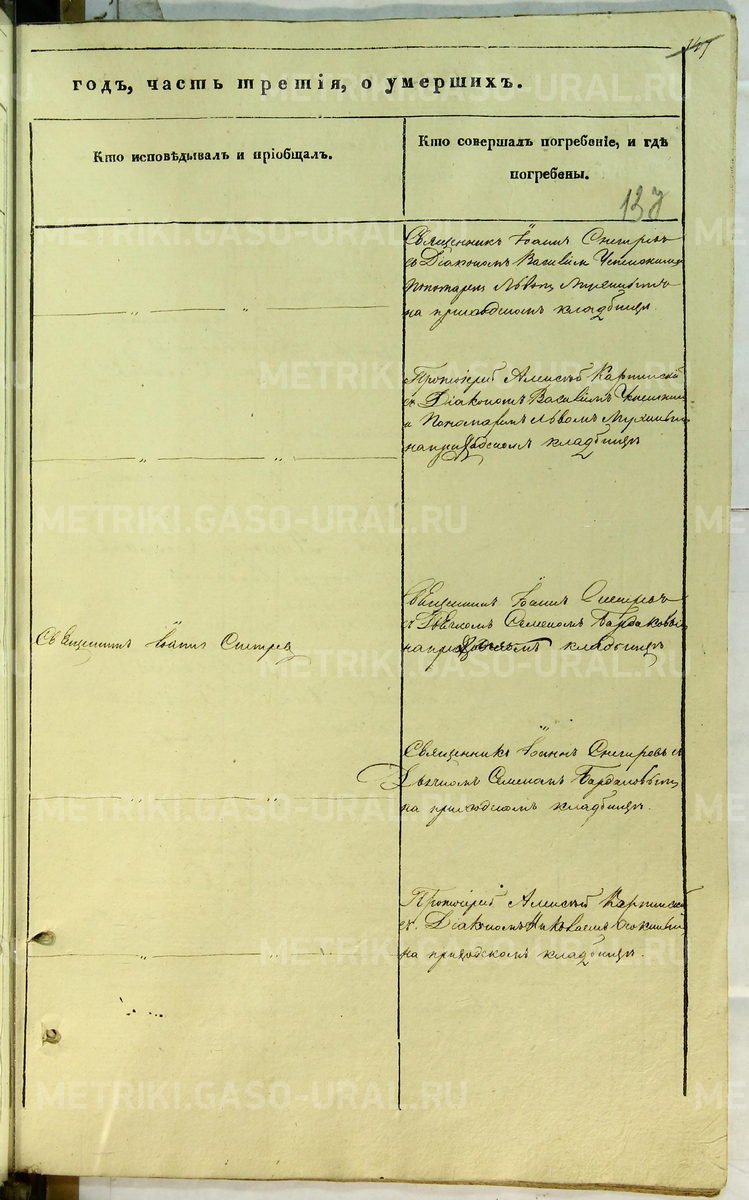 годъ, часть третія, о умершихъ.
Кто исповѣдывалъ и пріобщалъ.
Кто совершалъ погребеніе, и гдѣ
погребены.
137
Священникъ Іоаннъ Снегиревъ
съ Діакономъ Василіем
Пономарем Львом
на приходскомъ кладбищѣ.
Протоіерей Алексѣй Карпинскій
съ Діакономъ Василіемъ
и Пономаремъ Львомъ
на приходскомъ кладбищѣ
Священникъ Іоаннъ Снегиревъ
Священникъ Іоаннъ Снегиревъ
съ Дьячкомъ Семеномъ Бардаковымъ
на приходскомъ кладбищѣ
Священникъ Іоаннъ Снегиревъ съ
Дьячкомъ Семеномъ Бардаковымъ
на приходскомъ кладбищѣ.
Протоіерей Алексѣй Карпинскій
съ Діакономъ Николаемъ
на приходскомъ кладбищѣ.
METRIKI.GASO-URAL.RU